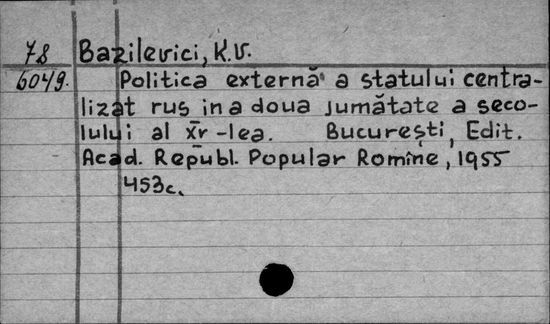 78
6049.
Bazilevici, K.V.
Politica externă a statului centra-
lizat rus in a doua jumătate a seco-
lului al XV-lea. București, Edit.
Acad. Republ. Popular Romîne, 1955
453c.